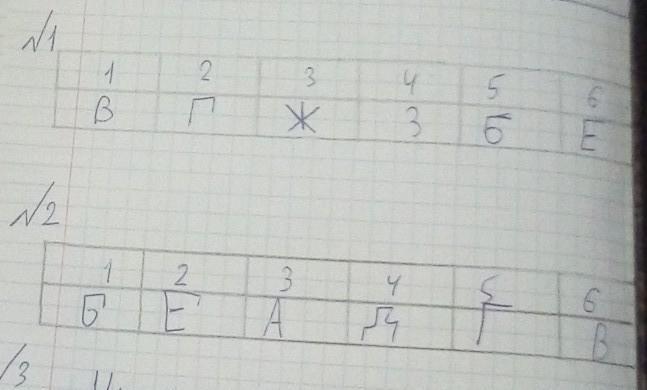 №1
1 2 3 4 5 6
В П Ж З Б Е
№2
1 2 3 4 5 6
Б Е А Д Г В